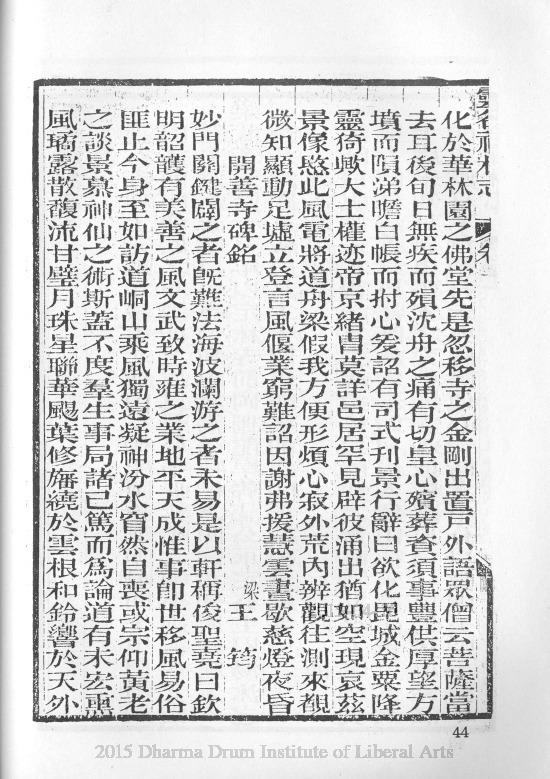 化於華林園之佛堂先是忽移寺之金剛出置戶外語眾僧云菩薩當
去耳後旬日無疾而殞沈舟之痛有切皇心殯葬資須事豐供厚望方
墳而隕涕瞻白帳而拊心爰詔有司式刊景行辭曰欲化毘城金粟降
靈猗歟大士權迹帝京緒胄莫詳邑居罕見辟彼涌出猶如空現哀茲
景像愍此風電將道舟梁假我方便形煩心寂外荒內辨觀往測來覩
微知顯動足墟立登言風偃業窮難詔因謝弗援慧雲晝歇慈燈夜昏
開善寺碑銘
梁 王筠
妙門關鍵闢之者既難法海波瀾游之者未易是以軒稱俊聖堯曰欽
明韶頀有美善之風文武致時雍之業地平天成惟事即世移風易俗
匪止今身至如訪道峒山乘風獨遠凝神汾水窅然自喪或宗仰黃老
之談景慕神仙之術斯蓋不度羣生事局諸己篤而為論道有未宏熏
風璚露散馥流甘璧月珠星聯華颺葉修幠繞於雲根和鈴響於天外
44
2015 Dharma Drum Institute of Liberal Arts